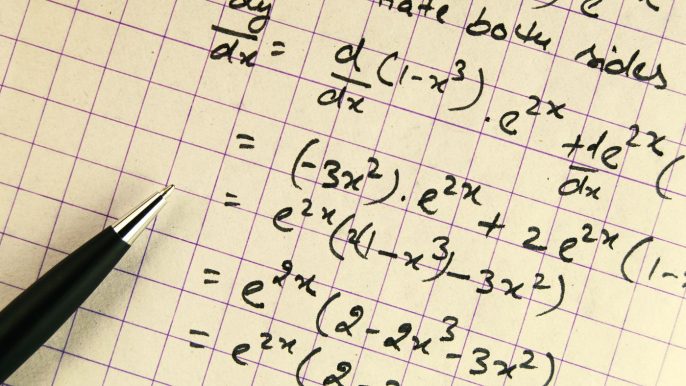 both sides
dy/dx = d/dx (1-x³) . e²ˣ + de²ˣ/dx (
= (-3x²) . e²ˣ + 2e²ˣ (1-
= e²ˣ (2(1-x³)-3x²)
= e²ˣ (2-2x³-3x²)
= e²ˣ (2-